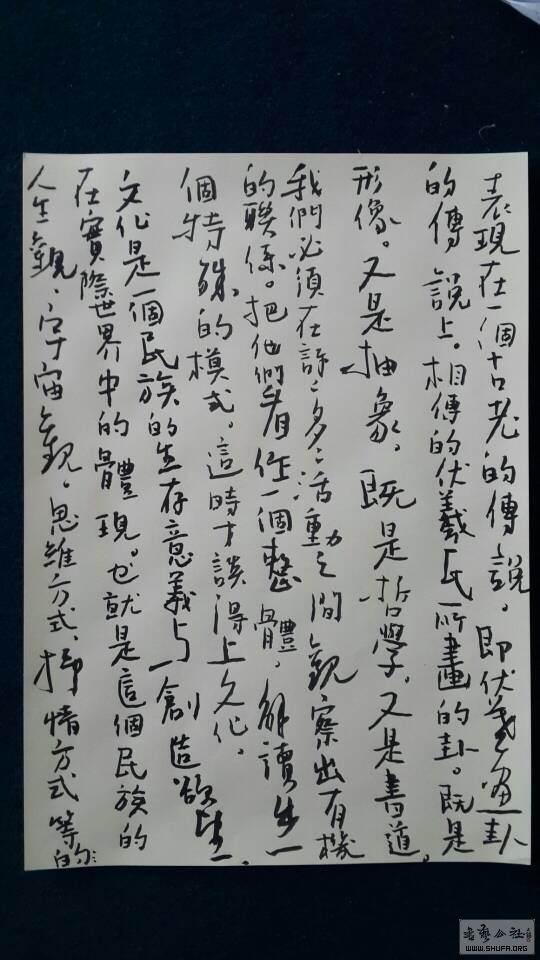 表現在一個古老的傳說。即伏羲画卦
的傳說上。相傳的伏羲氏所畫的卦。既是
形像。又是抽象。既是哲學。又是書道。
我們必須在許許多多活動之間觀察出有機
的聯係。把他們看作一個整體。解讀出一
個特殊的模式。這時才談得上文化。
文化是一個民族的生存意義与創造欲望
在實際世界中的體現。也就是這個民族的
人生觀、宇宙觀。思維方式、抒情方式等的
WWW.SHUFA.ORG